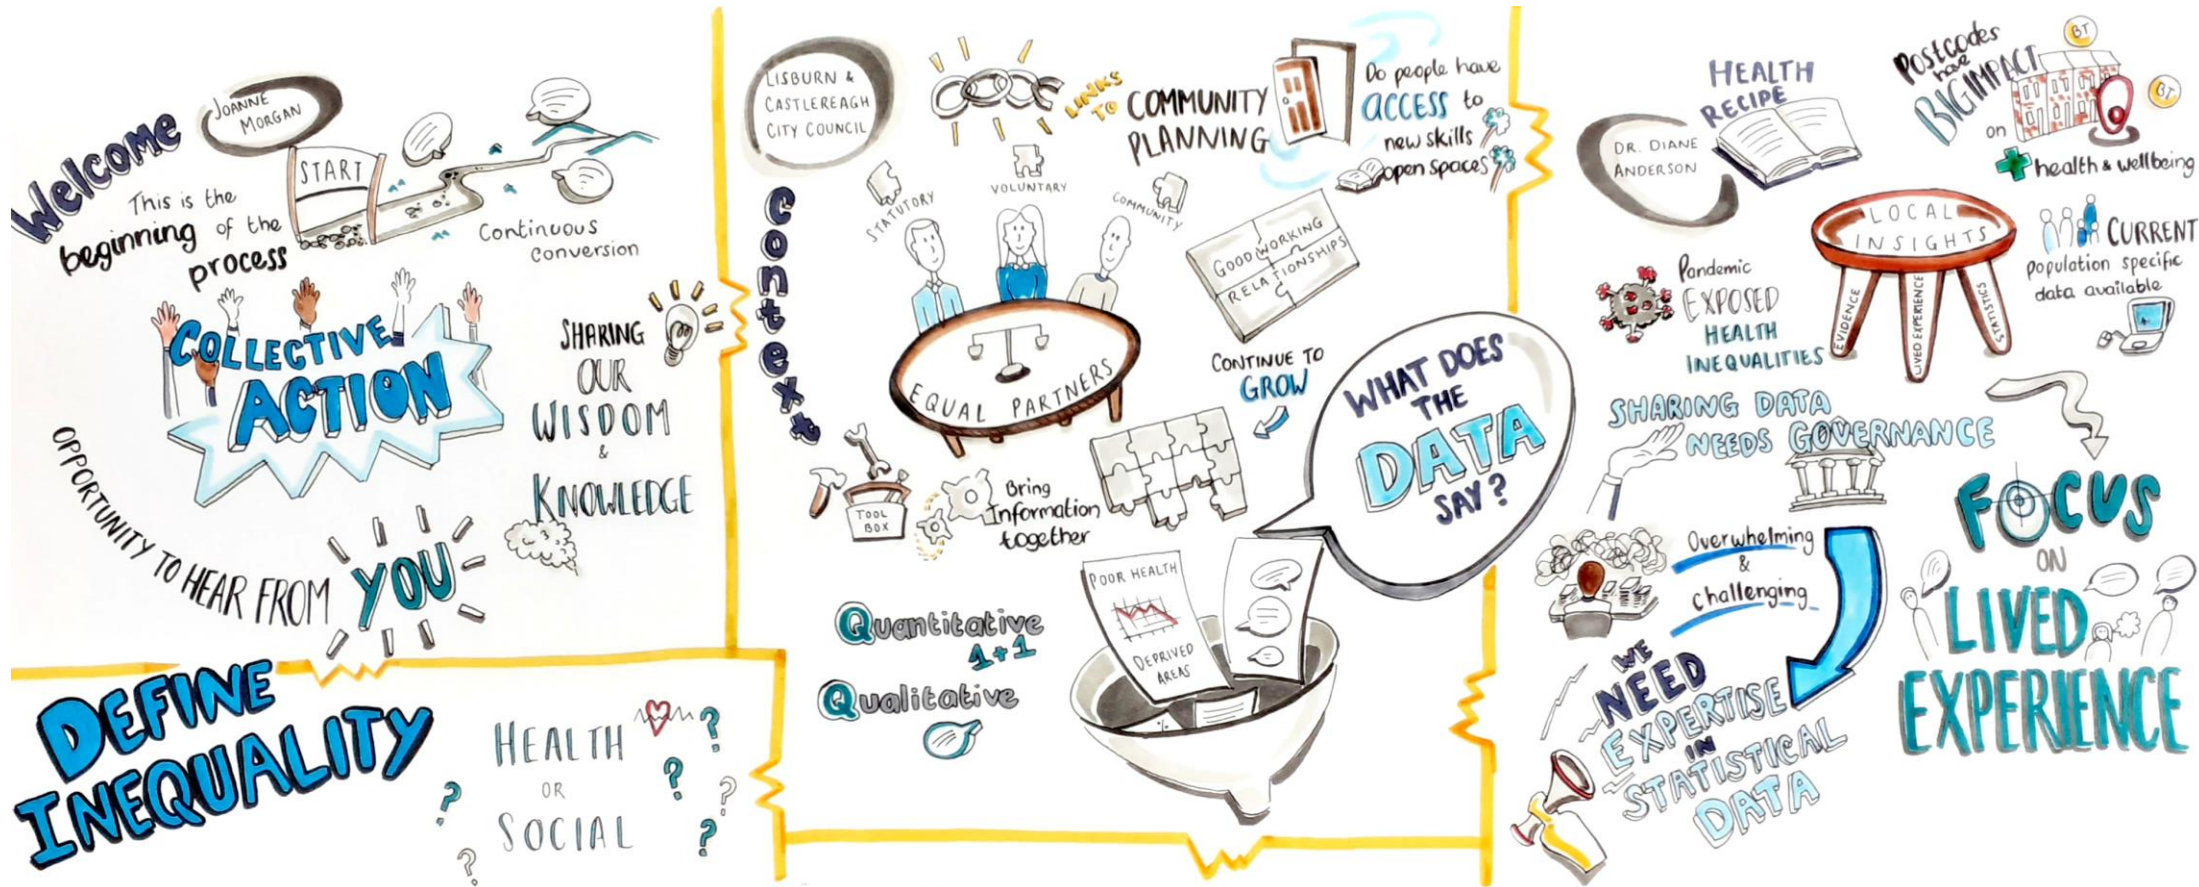 Welcome
JOANNE
MORGAN
This is the
beginning of the
process
START
Continuous
conversion
COLLECTIVE
ACTION
SHARING
OUR
WISDOM
&
KNOWLEDGE
OPPORTUNITY TO HEAR FROM YOU
DEFINE
INEQUALITY
HEALTH
OR
SOCIAL
? ? ? ? ? ?
LISBURN &
CASTLEREAGH
CITY COUNCIL
Context
LINKS
TO
COMMUNITY
PLANNING
Do people have
ACCESS to
new skills
open spaces
STATUTORY
VOLUNTARY
COMMUNITY
EQUAL PARTNERS
GOOD WORKING
RELATIONSHIPS
CONTINUE TO
GROW
TOOL
BOX
Bring
Information
together
WHAT DOES
THE
DATA
SAY?
Quantitative
1+1
Qualitative
POOR HEALTH
DEPRIVED
AREAS
DR. DIANE
ANDERSON
HEALTH
RECIPE
Postcodes
have
BIG IMPACT
on
health & wellbeing
BT
BT
Pandemic
EXPOSED
HEALTH
INEQUALITIES
LOCAL
INSIGHTS
EVIDENCE
LIVED EXPERIENCE
STATISTICS
CURRENT
population specific
data available
SHARING DATA
NEEDS GOVERNANCE
Overwhelming
&
challenging
WE
NEED
EXPERTISE
IN
STATISTICAL
DATA
FOCUS
ON
LIVED
EXPERIENCE